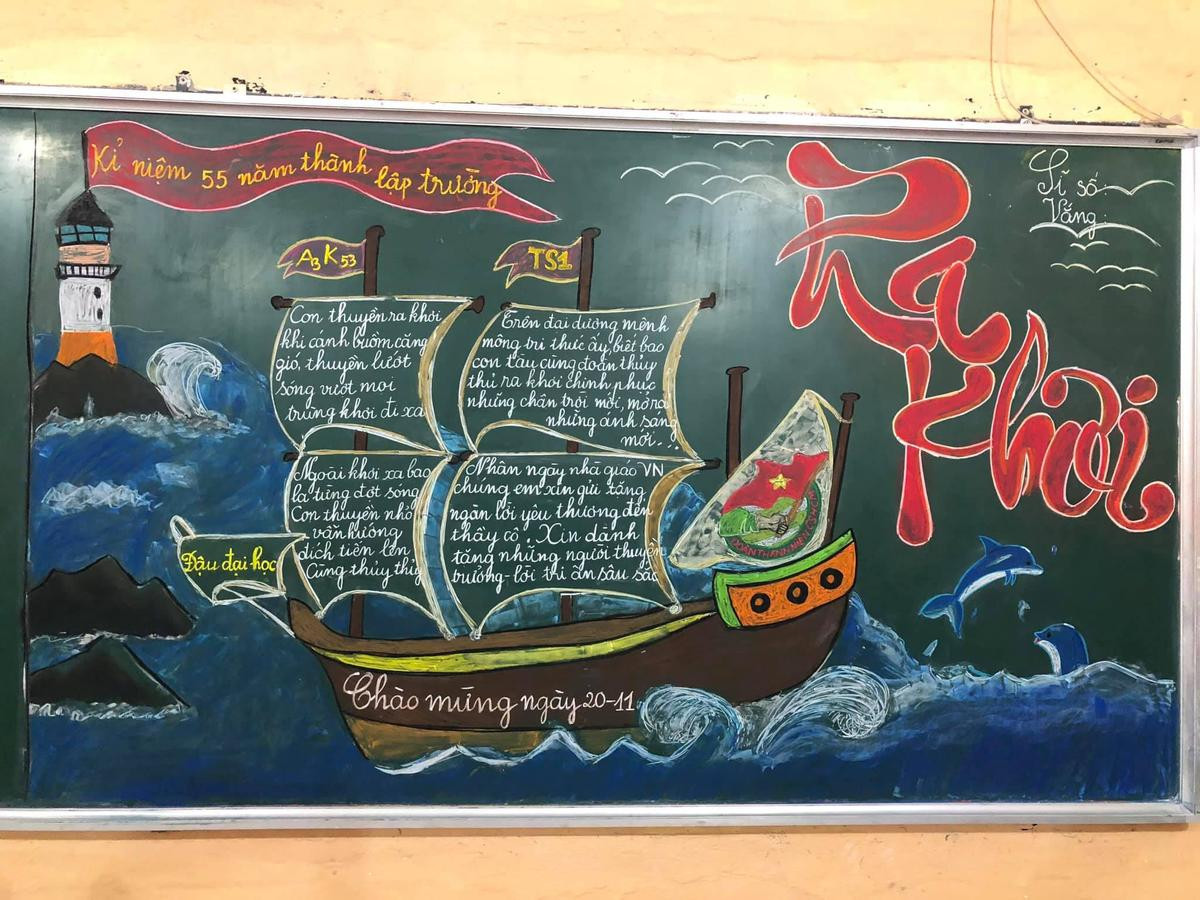 Kỉ niệm 55 năm thành lập trường
Ra
Khơi
Sĩ số
Vắng
A3 K53
TS1
Con thuyền ra khơi
khi cánh buồm căng
gió, thuyền lướt
sóng vượt mọi
trùng khơi đi xa
Trên đại dương mênh
mông tri thức ấy, biết bao
con tàu cùng đoàn thủy
thủ ra khơi chinh phục
những chân trời mới, mở ra
những ánh sáng
mới...
Ngoài khơi xa bao
la từng đợt sóng
Con thuyền nhỏ
vẫn hướng
đích tiến lên
Cùng thủy thủ
Nhân ngày nhà giáo VN
chúng em xin gửi tặng
ngàn lời yêu thương đến
thầy cô. Xin dành
tặng những người thuyền
trưởng - lời tri ân sâu sắc
Đậu đại học
ĐOÀN THANH NIÊN
Chào mừng ngày 20-11